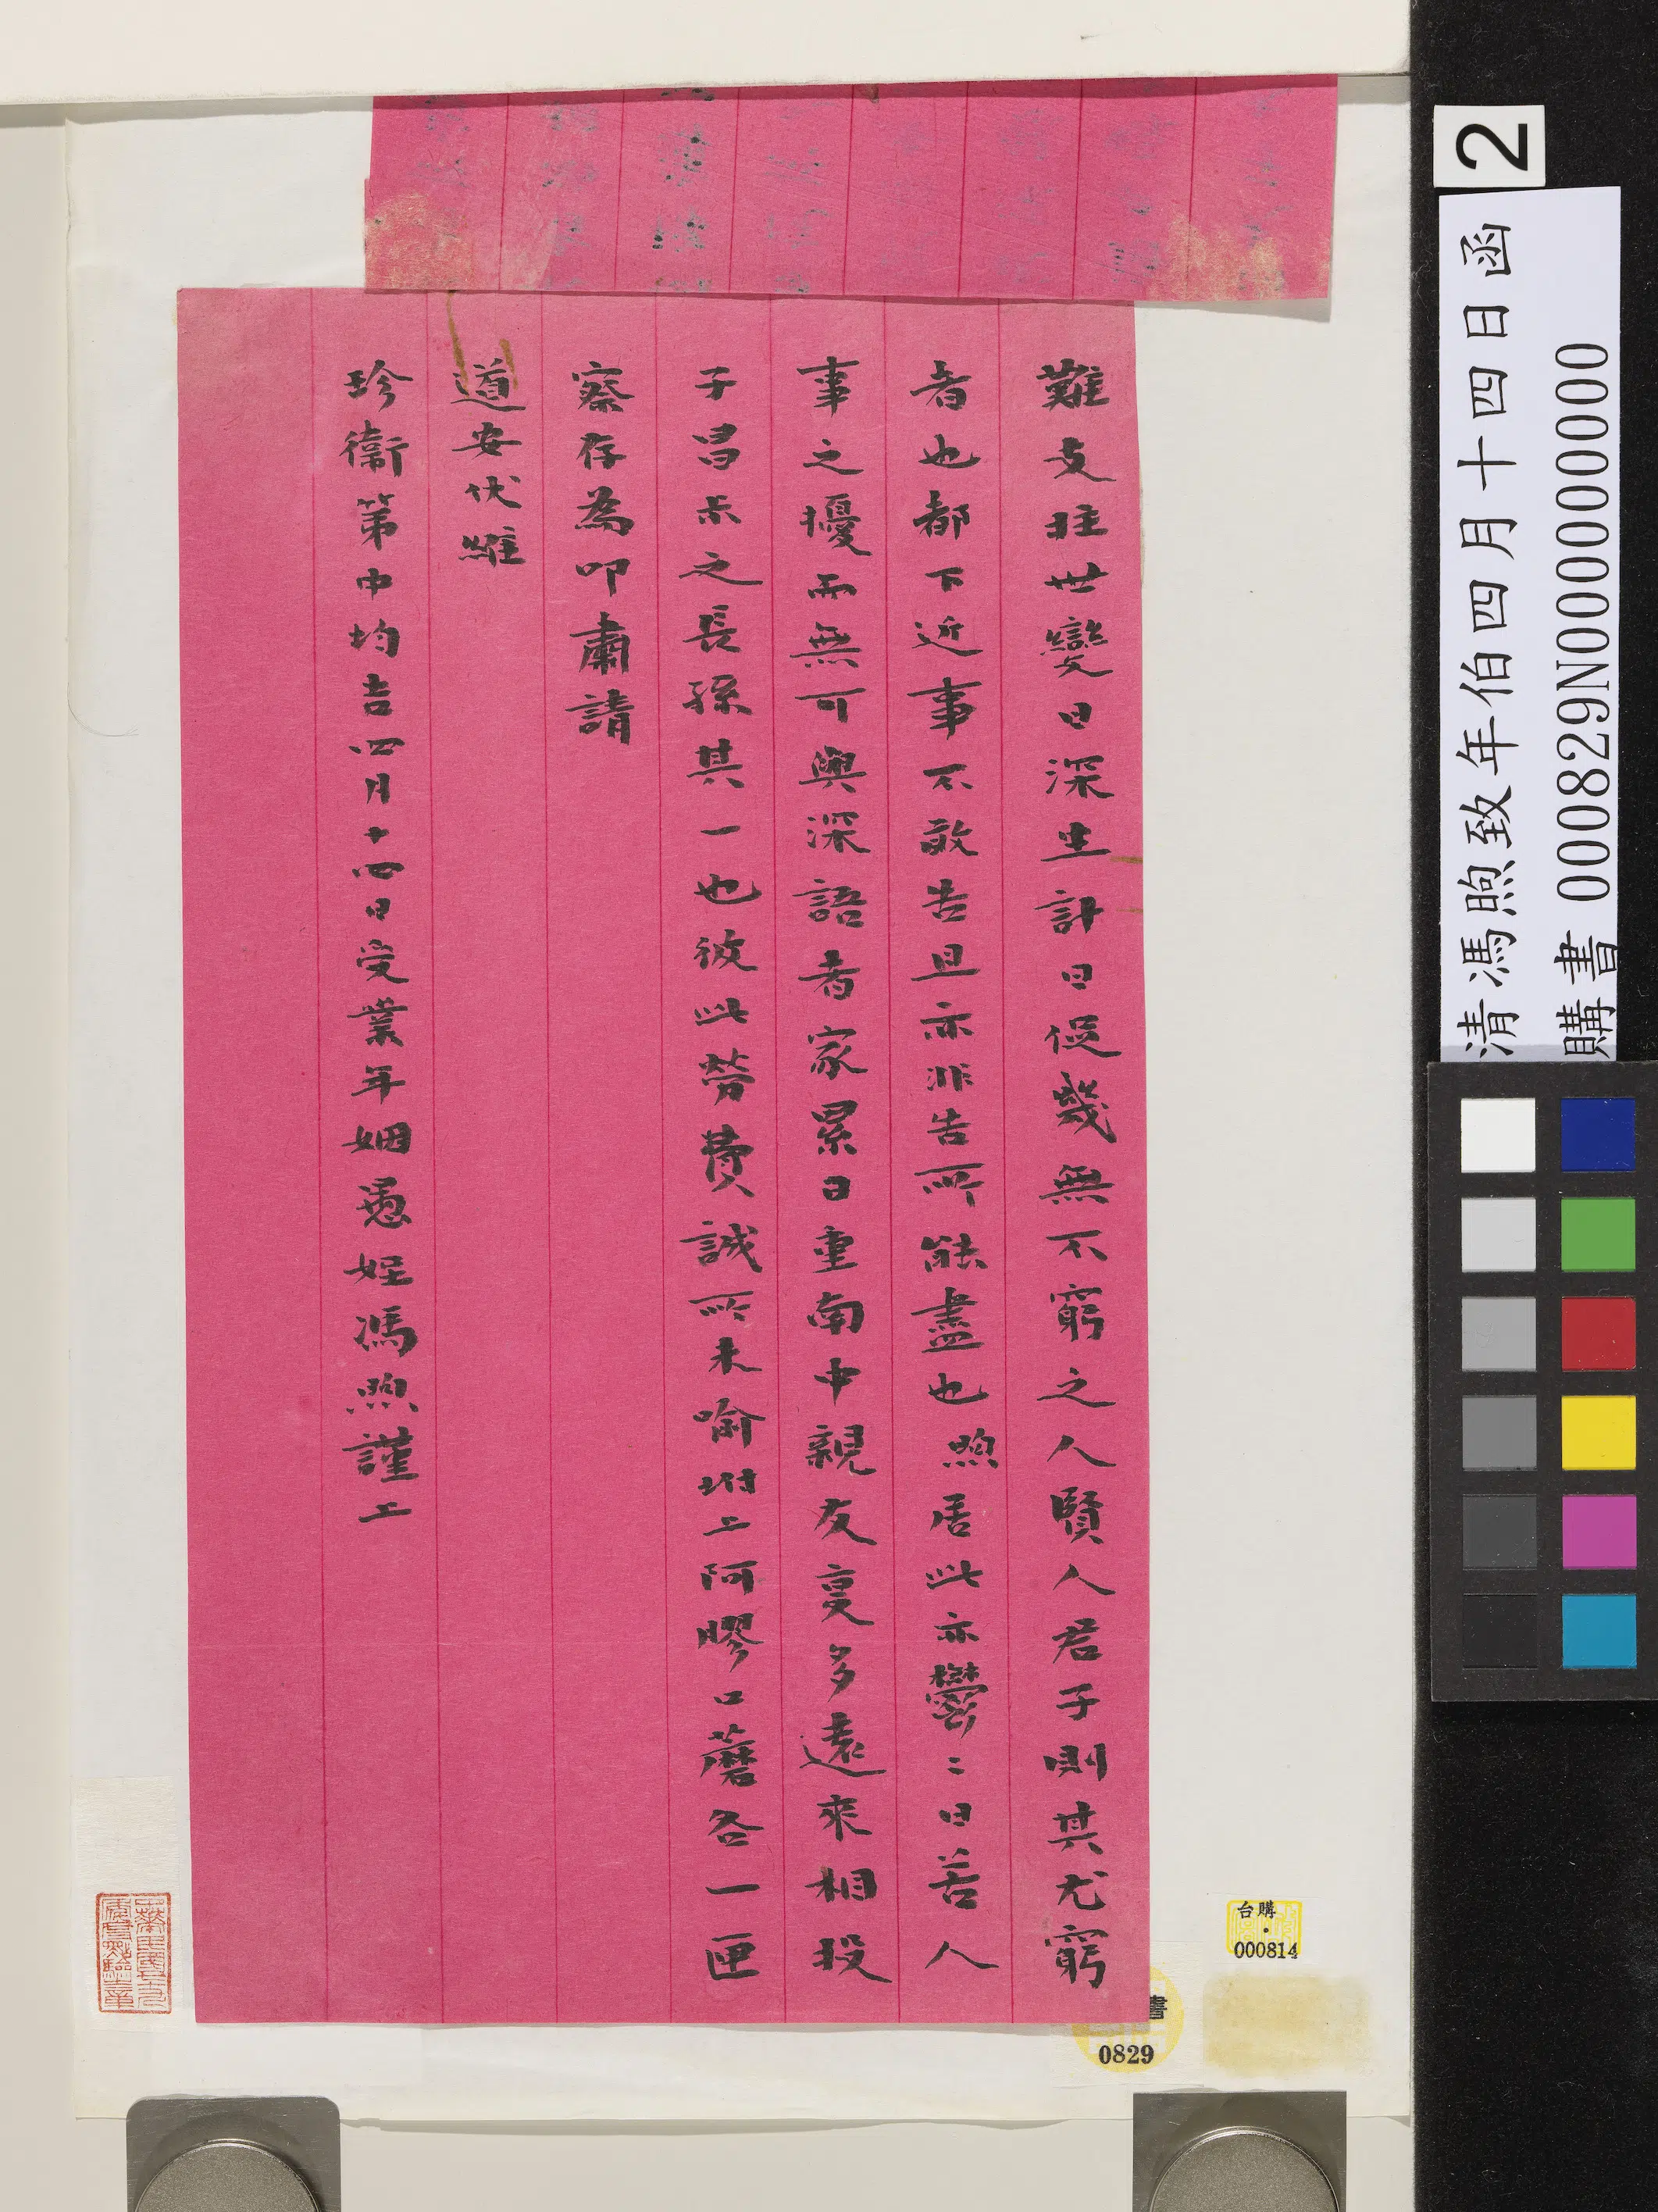 難支拄世變日深生計日促幾無不窮之人賢人君子則其尤窮
者也都下近事不敢告且亦非告所能盡也煦居此亦鬱〻日苦人
事之擾而無可與深語者家累日重南中親友更多遠來相投
子昌尗之長孫其一也彼此勞費誠所未喻坿上阿膠口蘑各一匣
察存為叩肅請
道安伏維
珍衞第中均吉四月十四日受業年姻愚姪馮煦謹上
2
清馮煦致年伯四月十四日函
購書 000829N000000000
台購
000814
書
0829